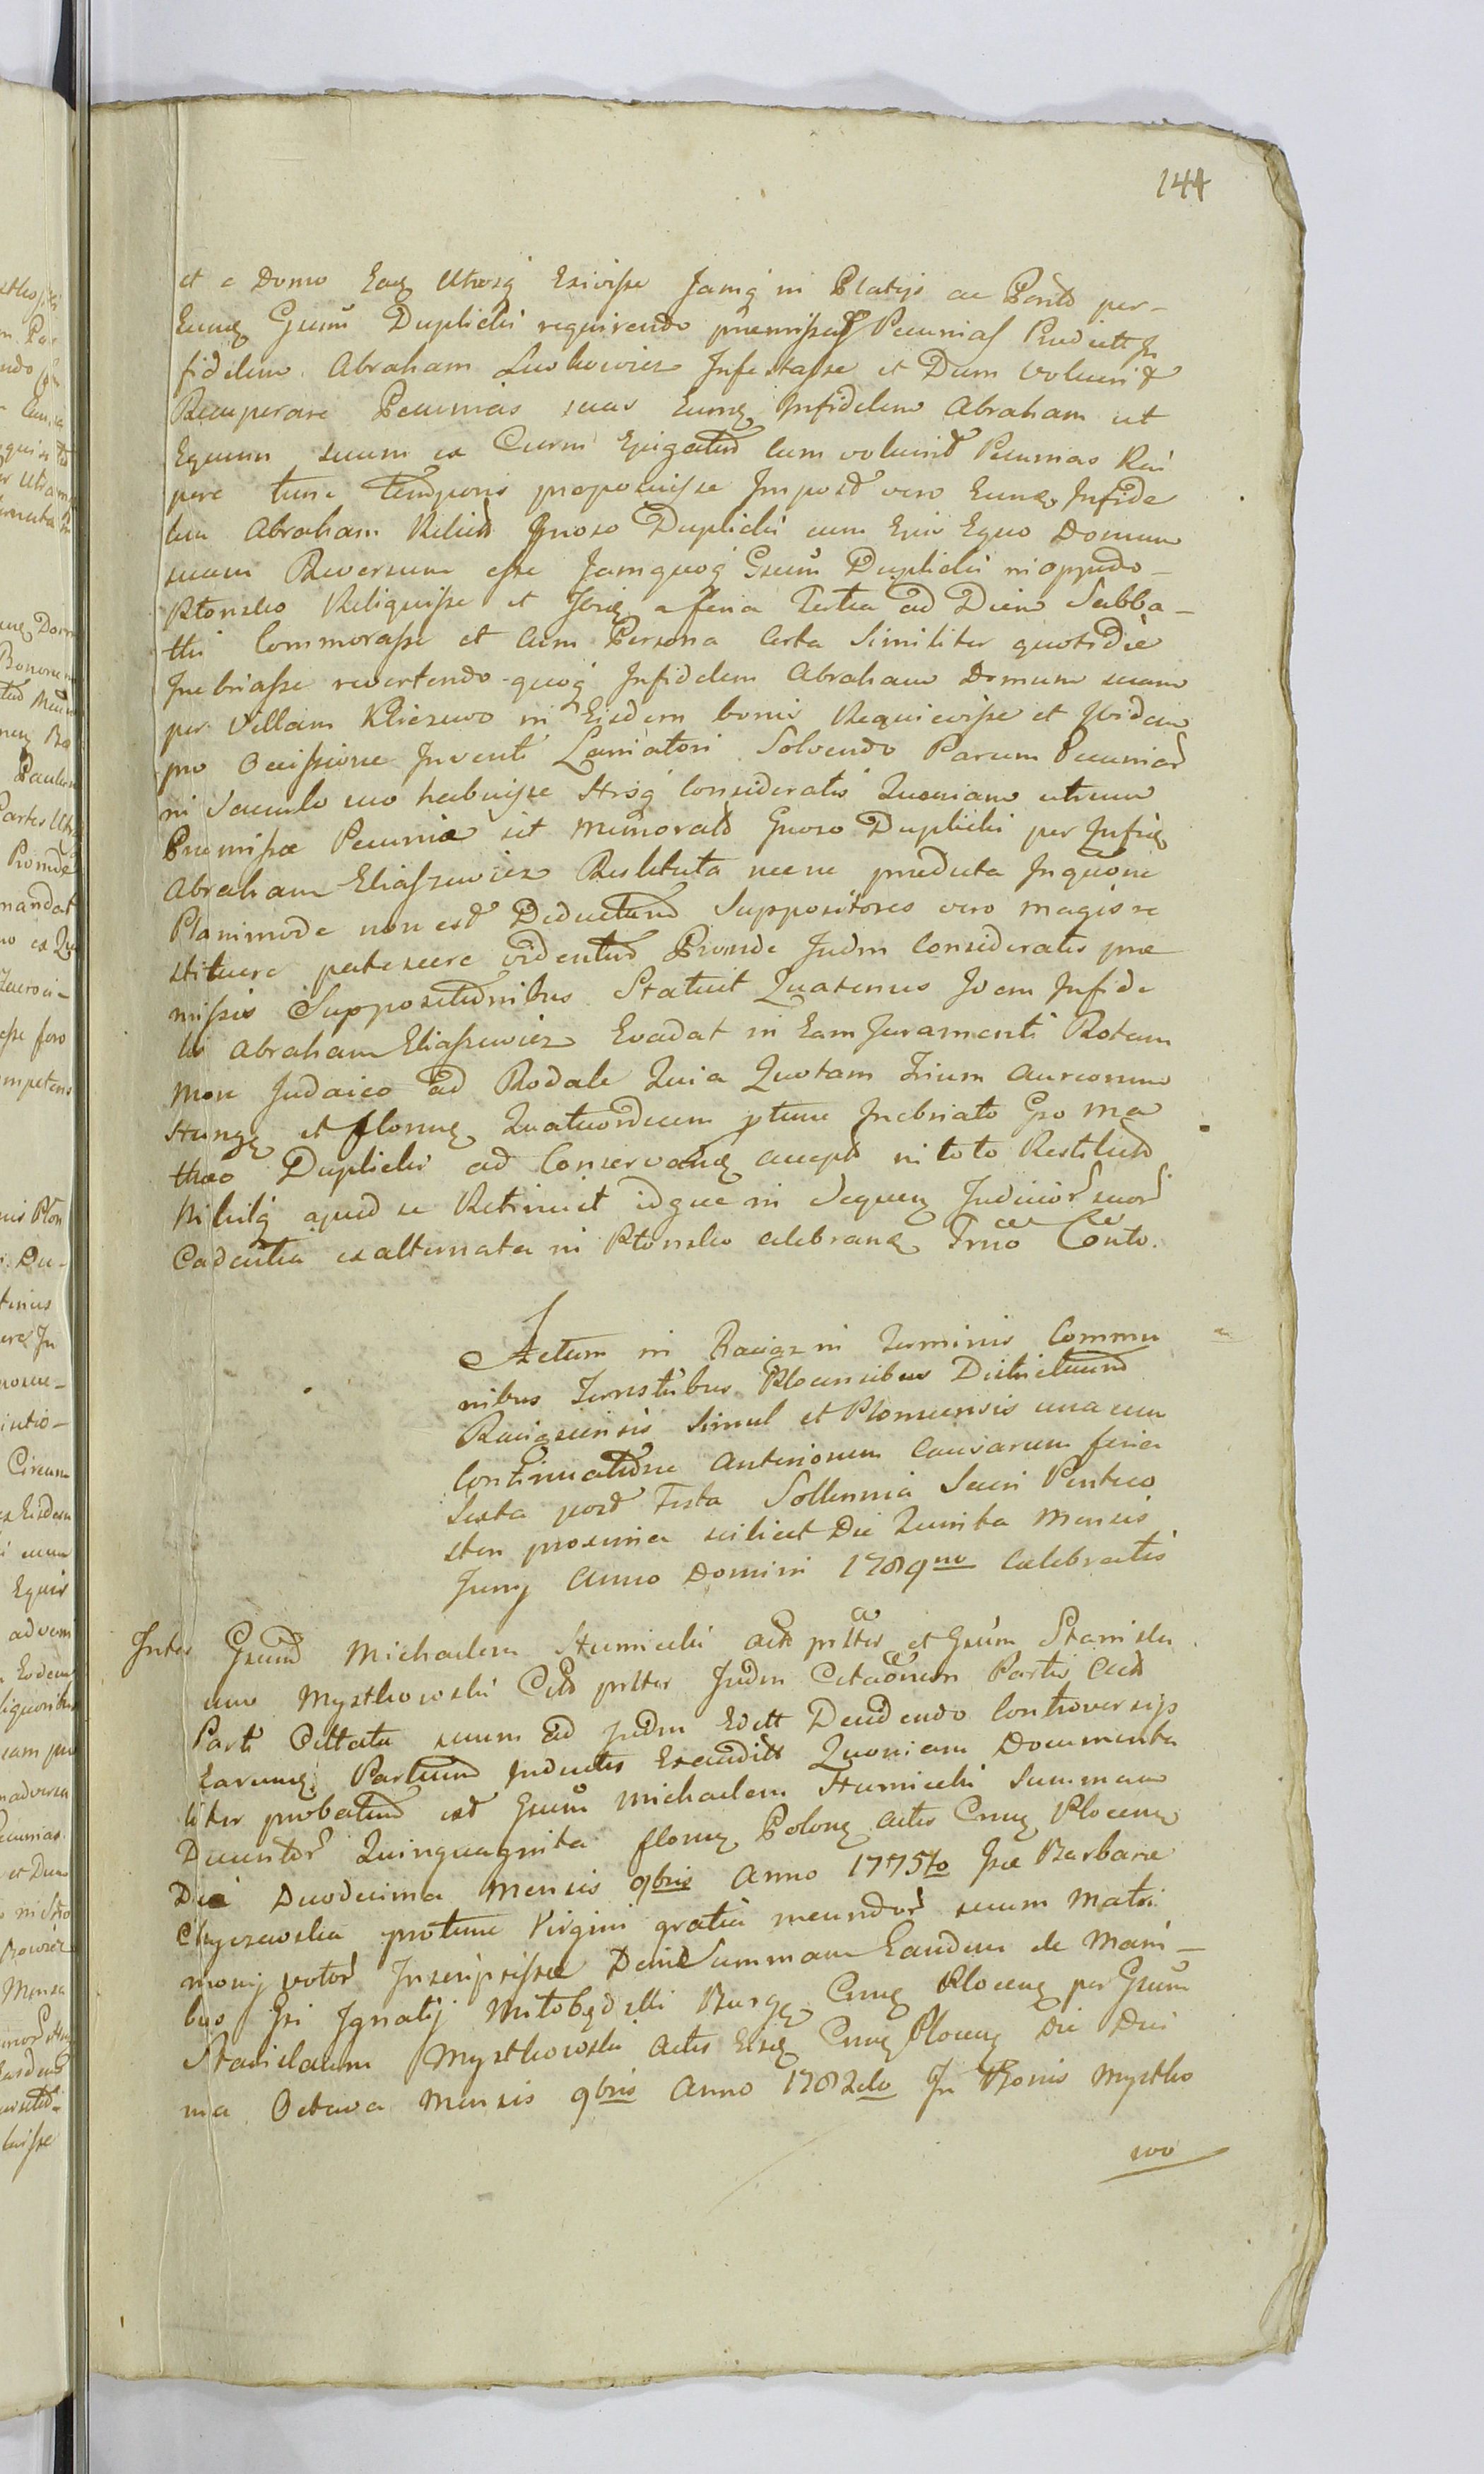 144
et e Domo Eaq Utrosq Exivisse Jamq in Platijs ac Pontd per-
Eumq Gsum Duplicki requirendo pnemissas Pecunias Rudictt In
fidelem Abraham Luskowicz Infestasse et Dum voluerit
Recuperare Pecunias suas Eumq Infidelem Abraham ut
Equum suum ex Curru Ejigatur cum voluerit Pecunias Rui
pere tunc temporis proposuisse Impostd vero Eumq Infide
lem Abraham Relicto Gnoso Duplicki cum Ejus Equo Domum
suam Reversum esse Jamquoq Gsum Duplicki in oppido
Płonsko Reliquisse et Ibiq a feria Tertia ad Diem Sabba-
thi Commorasse et cum Persona certa Similiter quotidie
Inebriasse revertendo quoq Infidelem Abraham Domum suam
per Villam Kliczewo in Eisdem bonis Requievisse et Ibidem
pro Occissione Juventi Laniatori Solvendo Parum Pecuniar
in Sacculo suo habuisse Hisq Consideratis Quoniam utrum
Premissæ Pecuniæ sit memoratd Gnoso Duplicki per Infiq
Abraham Eliaszewicz Restituta necne preducta Inqnone
Planimode non est Deductum Suppositores vero magis re
stituere patescere videntur Proinde Judm Consideratis præ
missis Suppositionibus Statuit Quatenus Idem Infide
lis Abraham Eliaszewicz Evadat in Eam Juramenti Rotam
More Judaico ad Rodale Quia Quotam Trium Aureorum
Hungq et florenq Quatuordecem ptunc Inebriato Gso Ma
thæo Duplicki ad Conservandq accepta in toto Restituit
Nihilq apud se Retinuit idque in Sequenq Judicior suor
Cadentia ex alternata in Płonsko celebranq Trno Conto.
Actum in Raciąz in Terminis Commu
nibus Terrstribus Plocensibus Districtuum
Raciązensis Simul et Plonscensis una cum
Continuatione Anteriorum Causarum feria
Sexta post Festa Sollennia Sacri Penteco
sten proxima scilicet Die Quinta Mensis
Junij Anno Domini 1789no Celebratis
Inter Gsum Michaelem Humiecki Act pntter et Gsum Stanisla
um Mystkowski Citt pntter Judm Citaonem Partis Act
Parti Cittatæ suum ad Judm Edett Decidendo Controversijs
Earumq Partium Inductis Exauditt Quoniam Documenta
liter probatum est Gsum Michaelem Humiecki Summam
Ducentor Quinquaginta florenq Polonq Actis Cnnq Plocenq
Die Duodecima Mensis 9bris Anno 1775to Gsæ Barbaræ
Chyczewska protunc Virgini gratia ineundor secum Matri
monij votor Inscripsisse Dein Summam Eandem de Mani-
bus Gsi Ignatij Miłobędzki Burgq Cnnq Plocenq per Gsum
Stanislaum Mystkowski Actis Eisq Cnnq Plocenq Die Deci
ma Octava Mensis 9bris Anno 1782do In Bonis Mystko
wo